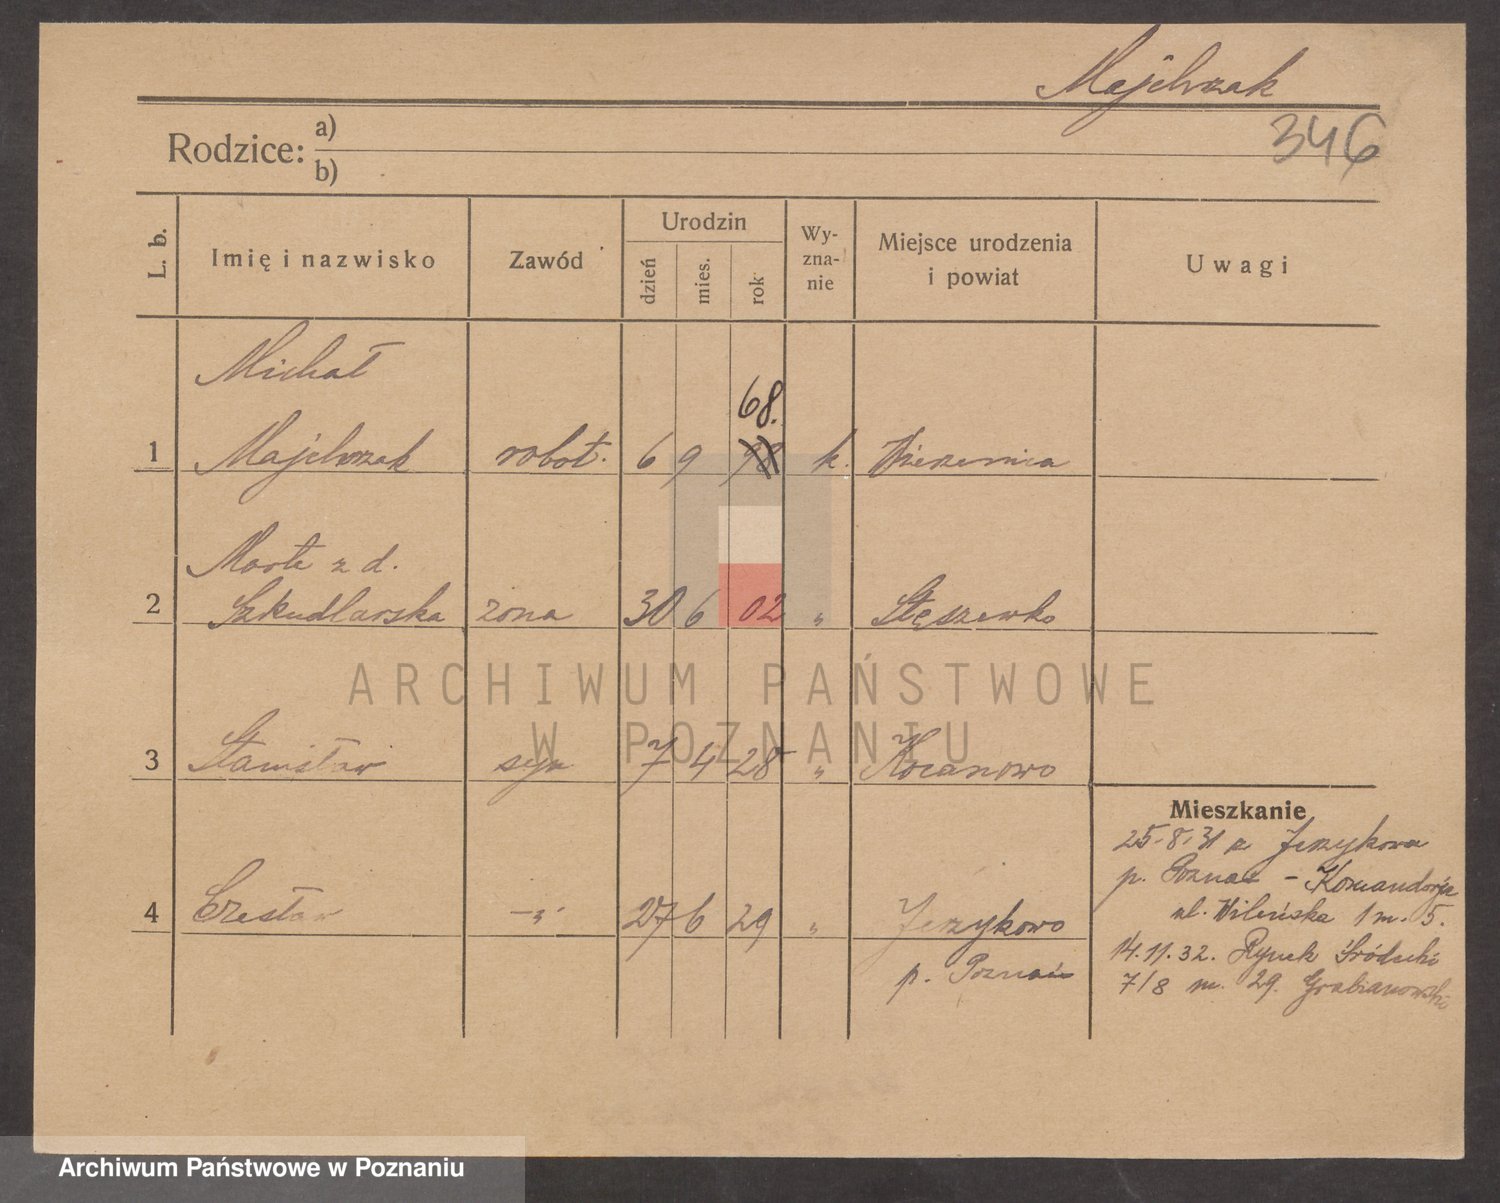 Majchrzak
346
Rodzice: a)
b)
L. b. Imię i nazwisko Zawód Urodzin dzień mies. rok Wy-zna-nie Miejsce urodzenia i powiat Uwagi
Michał
68.
1 Majchrzak robot. 6 9 98 k. Wierzenica
Marta z d.
2 Szkudlarska żona 30 6 02 " Stęszewko
ARCHIWUM PAŃSTWOWE
W POZNANIU
3 Stanisław syn 7 4 28 " Kocanowo
Mieszkanie
25.8.31 z Jerzykowa
p. Poznań - Komandorja
4 Czesław -"- 27 6 29 " Jerzykowo
ul. Wileńska 1 m. 5.
p. Poznań
14.11.32. Rynek Śródecki
7/8 m. 29. Grabianowski
Archiwum Państwowe w Poznaniu